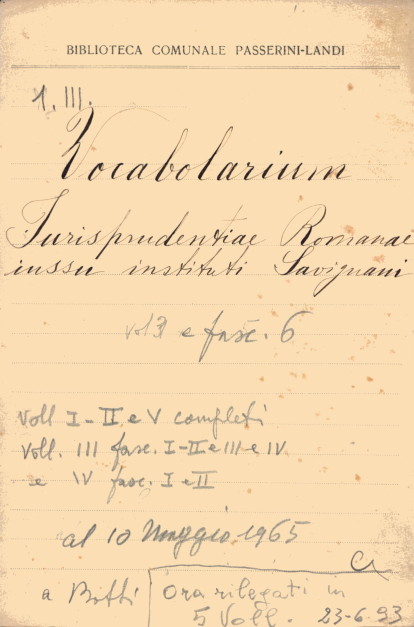 BIBLIOTECA COMUNALE PASSERINI-LANDI
1. III.
Vocabolarium
Jurisprudentiae Romanae
iussu instituti Savignani
vol 3 e fasc. 6
Voll I-II e V completi
Voll. III fasc. I-II e III e IV
e IV fasc. I e II
al 10 Maggio 1965
a Botti
Ora rilegati in
5 Voll. 23-6-93